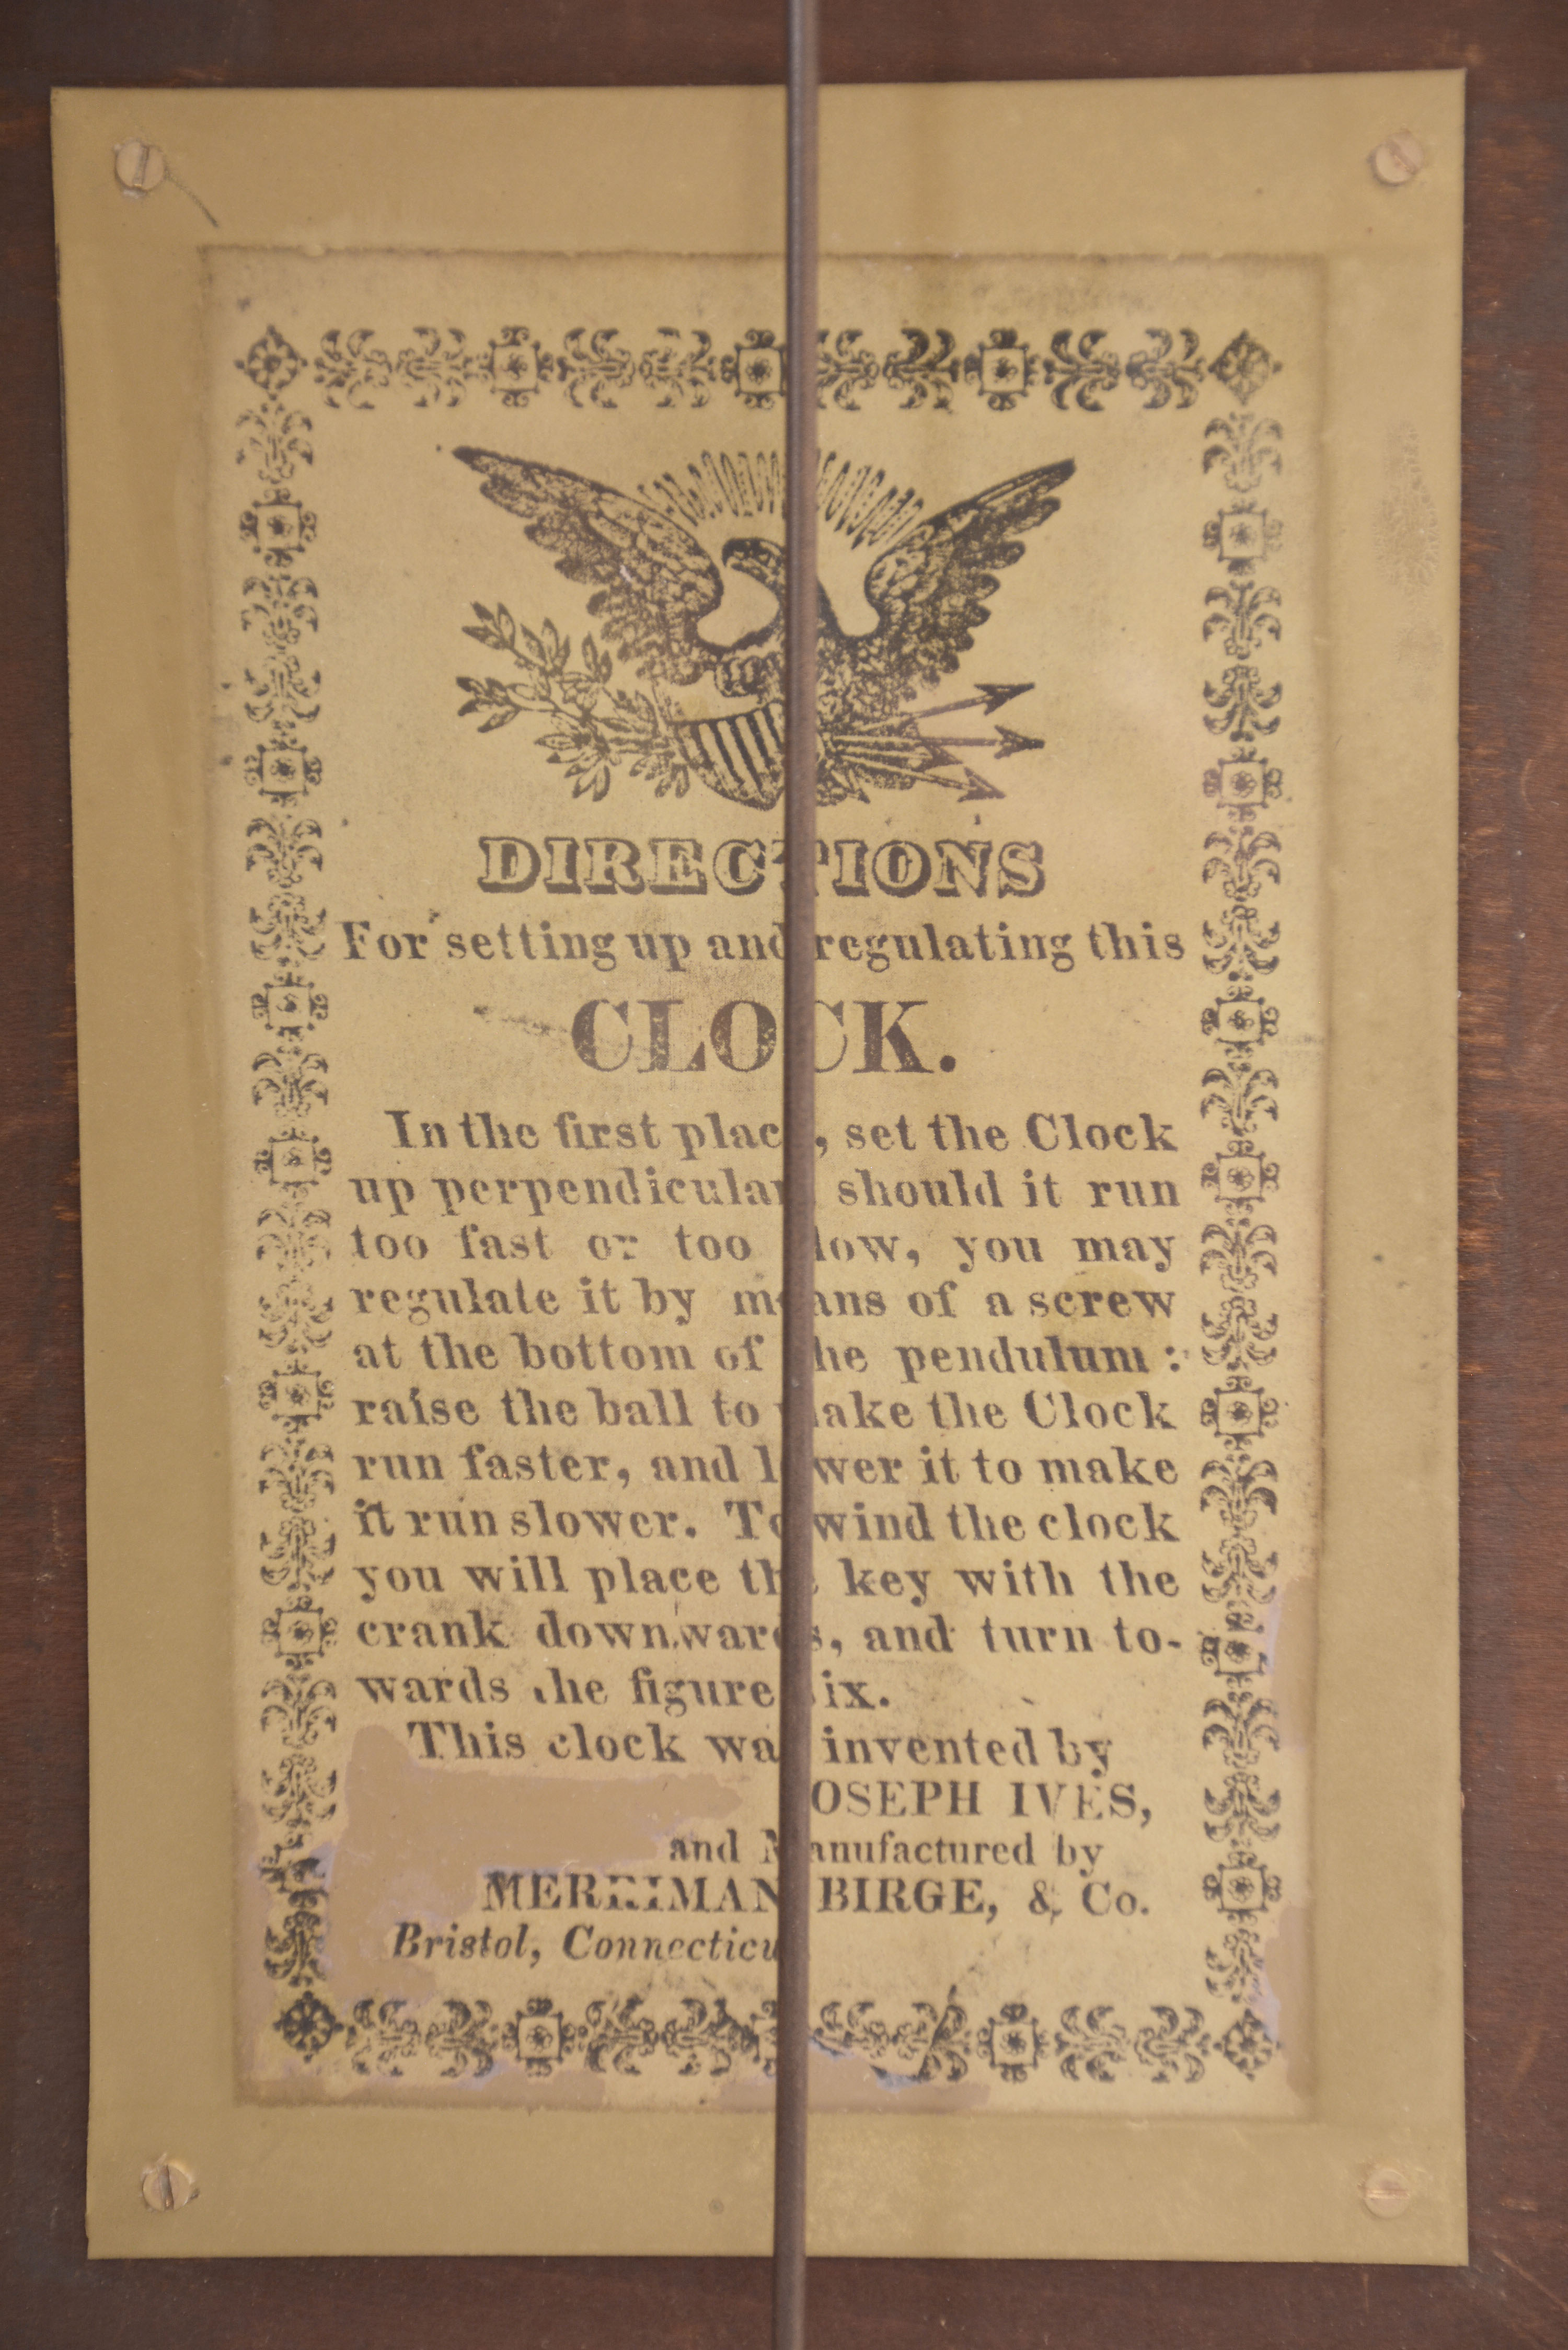 DIRECTIONS
For setting up and regulating this
CLOCK.
In the first place, set the Clock
up perpendicular, should it run
too fast or too slow, you may
regulate it by means of a screw
at the bottom of the pendulum:
raise the ball to make the Clock
run faster, and lower it to make
it run slower. To wind the clock
you will place the key with the
crank downwards, and turn to-
wards the figure six.
This clock was invented by
JOSEPH IVES,
and Manufactured by
MERRIMAN BIRGE, & Co.
Bristol, Connecticut